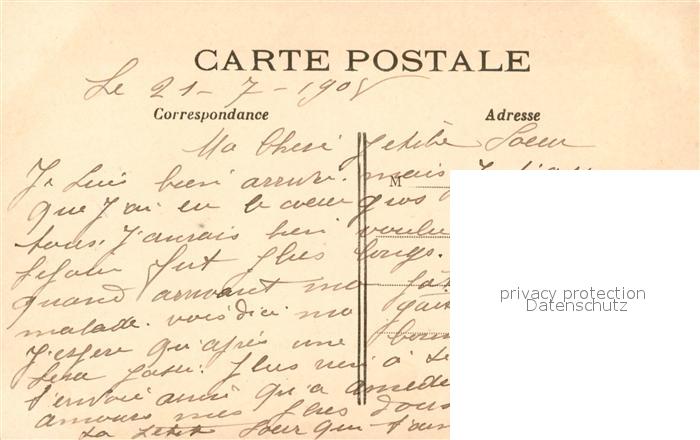 CARTE POSTALE
Le 21 - 7 - 1908
Correspondance Adresse
Ma Cheri petite Soeur
Je suis bien arrivé. mais
M
que J'ai eu le coeur gros
tous. J'aurais bien voulu
sejour fut plus longs.
quand arrivant ma
malade. voici
J'espere qu'après une
sera passé. plus rien à te
t'envoie ainsi qu'a
amours mes plus doux
Ta petite Soeur qui t'aim
privacy protection
Datenschutz